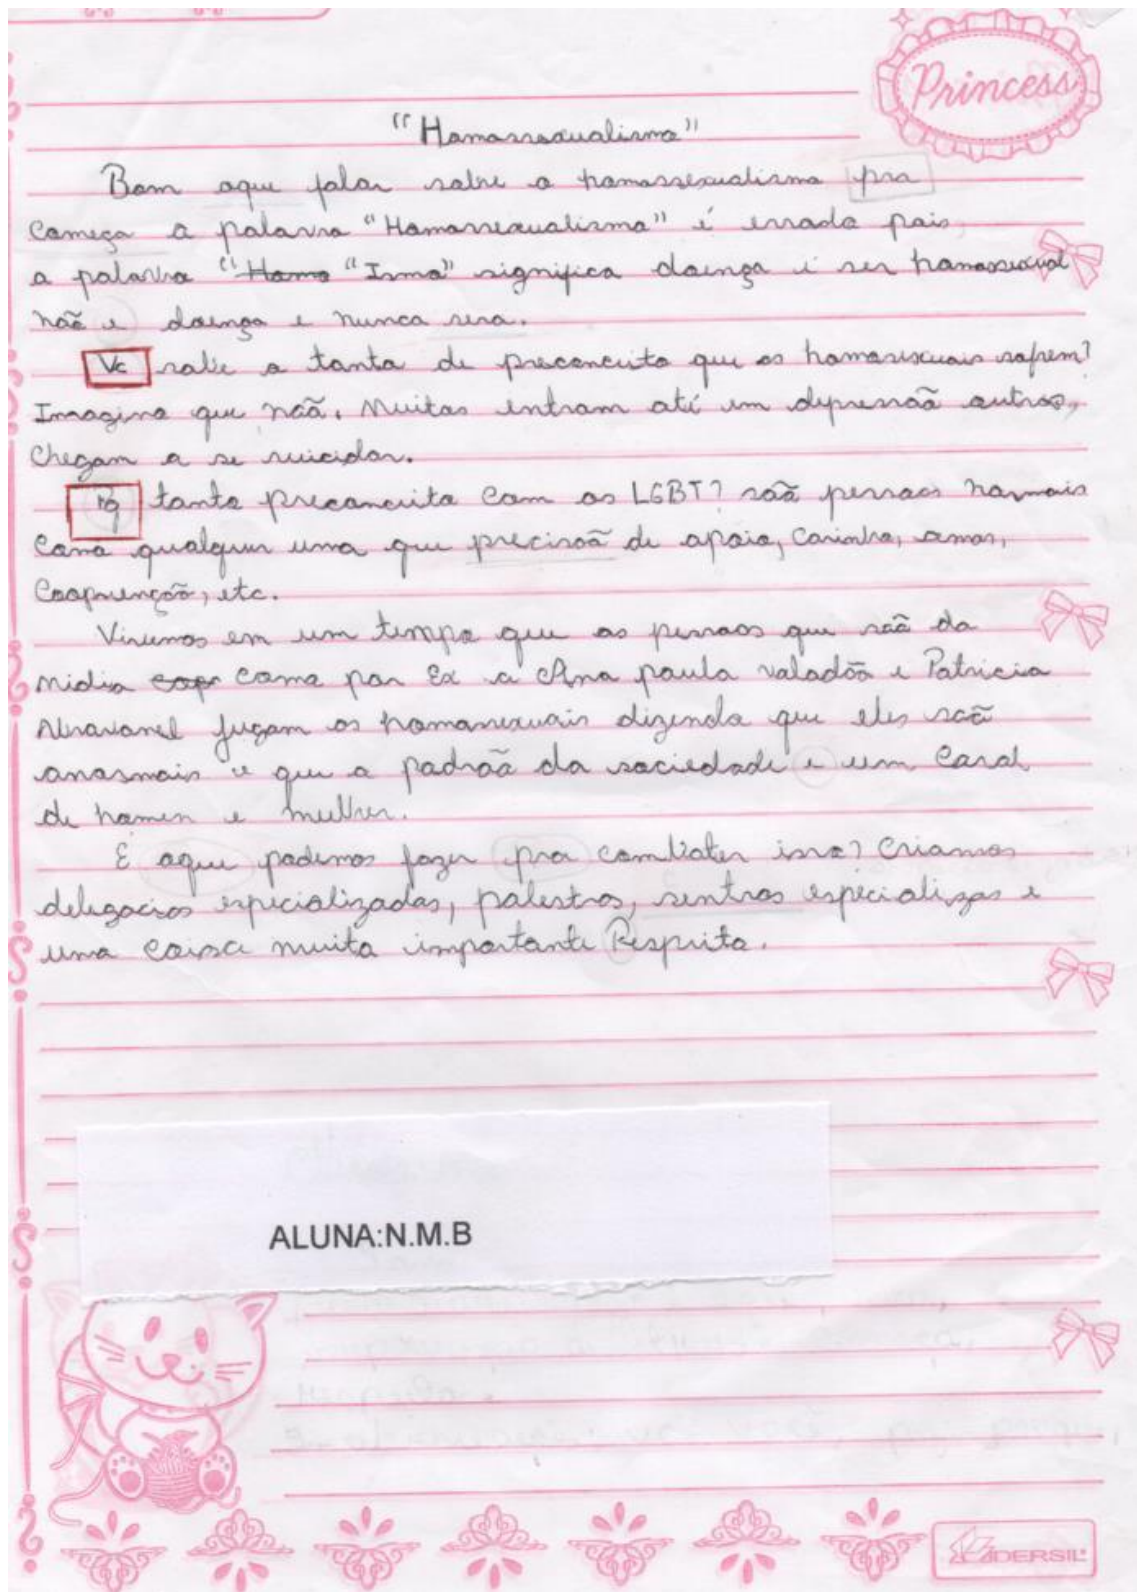 Princess
"Homossexualismo"
Bom aque falar sobre o homossexualismo pra
começa a palavra "Homossexualismo" é errada pois,
a palavra "Homo "Ismo" significa doença i ser homossexual
não e doença e nunca sera.
Vc sabe o tanto de preconceito que os homosexuais sofrem?
Imagino que não. Muitos entram até em depressão outros,
chegam a se suicidar.
Pq tanto preconceito com os LGBT? são pessoas normais
como qualquer uma que precisão de apoio, carinho, amor,
coopreenção, etc.
Vivemos em um tempo que as pessoas que são da
midia como por Ex a Ana paula valadão e Patricia
Abravanel jugam os homosexuais dizendo que eles são
anormais e que o padrão da sociedade e um casal
de homen e mulher.
E aque podemos fazer pra combater isso? Criamos
delegacias especializadas, palestras, sentros especializas e
uma coisa muito importante Respeito.
ALUNA:N.M.B
LIDERSIL